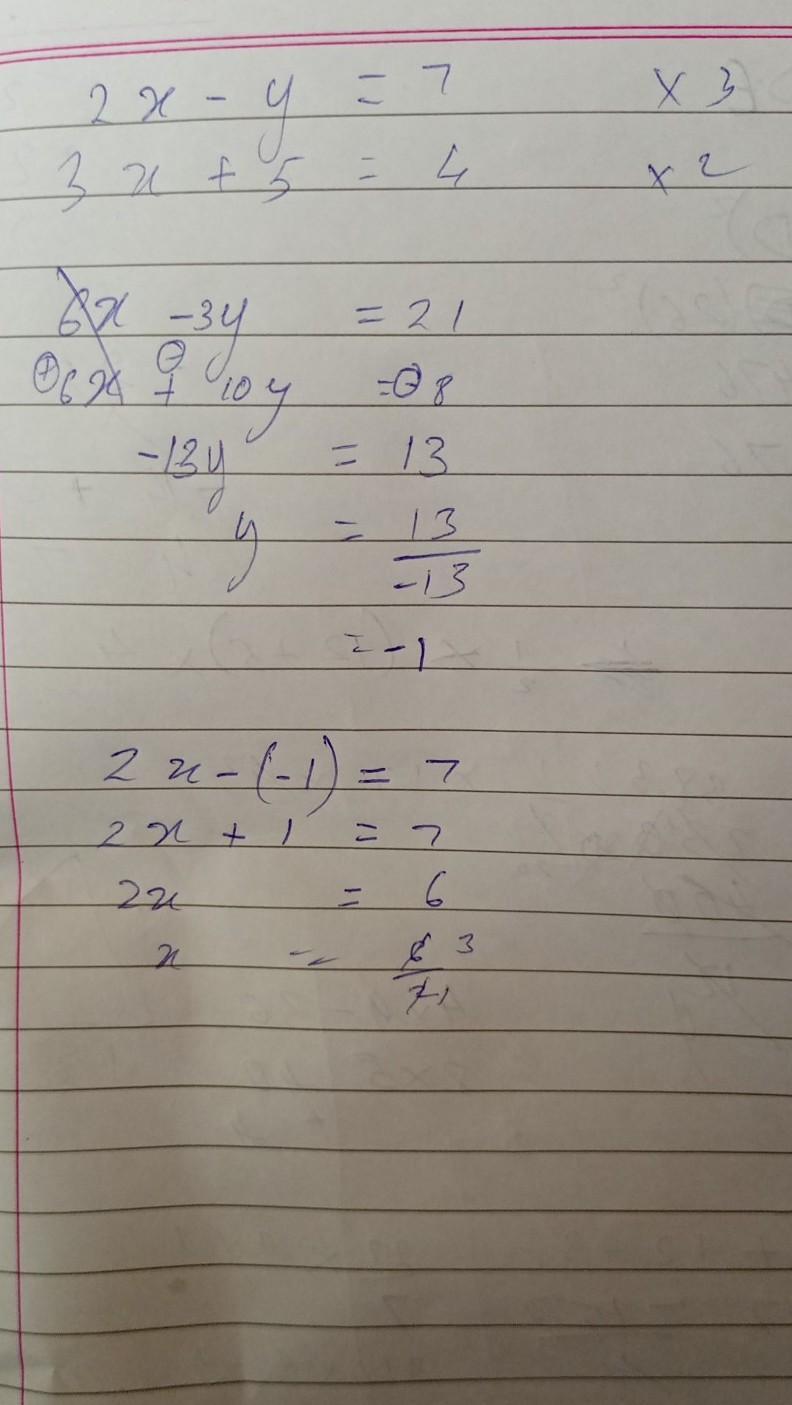 2x - y = 7 × 3
3x + 5 = 4 × 2
6x - 3y = 21
⊕6x + ⊖ 10y = ⊖ 8
-13y = 13
y = 13/-13
= -1
2x - (-1) = 7
2x + 1 = 7
2x = 6
x = 6 3/2 1